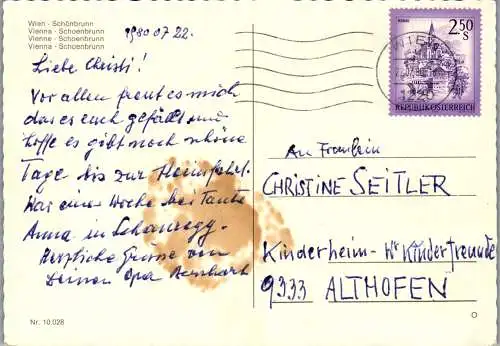 Wien - Schönbrunn
Vienna - Schoenbrunn
Vienne - Schoenbrunn
Vienna - Schoenbrunn
1980 07 22.
Liebe Christi!
Vor allem freut es mich
das es euch gefällt und
hoffe es gibt noch schöne
Tage bis zur Heimfahrt.
War eine Woche bei Tante
Anna in
Herzliche Grüsse von
Deinen Opa Bernhart
Nr. 10.028
2.50
S
REPUBLIK ÖSTERREICH
WIEN
An Fräulein
CHRISTINE SEITLER
Kinderheim - Wr Kinderfreunde
9333 ALTHOFEN